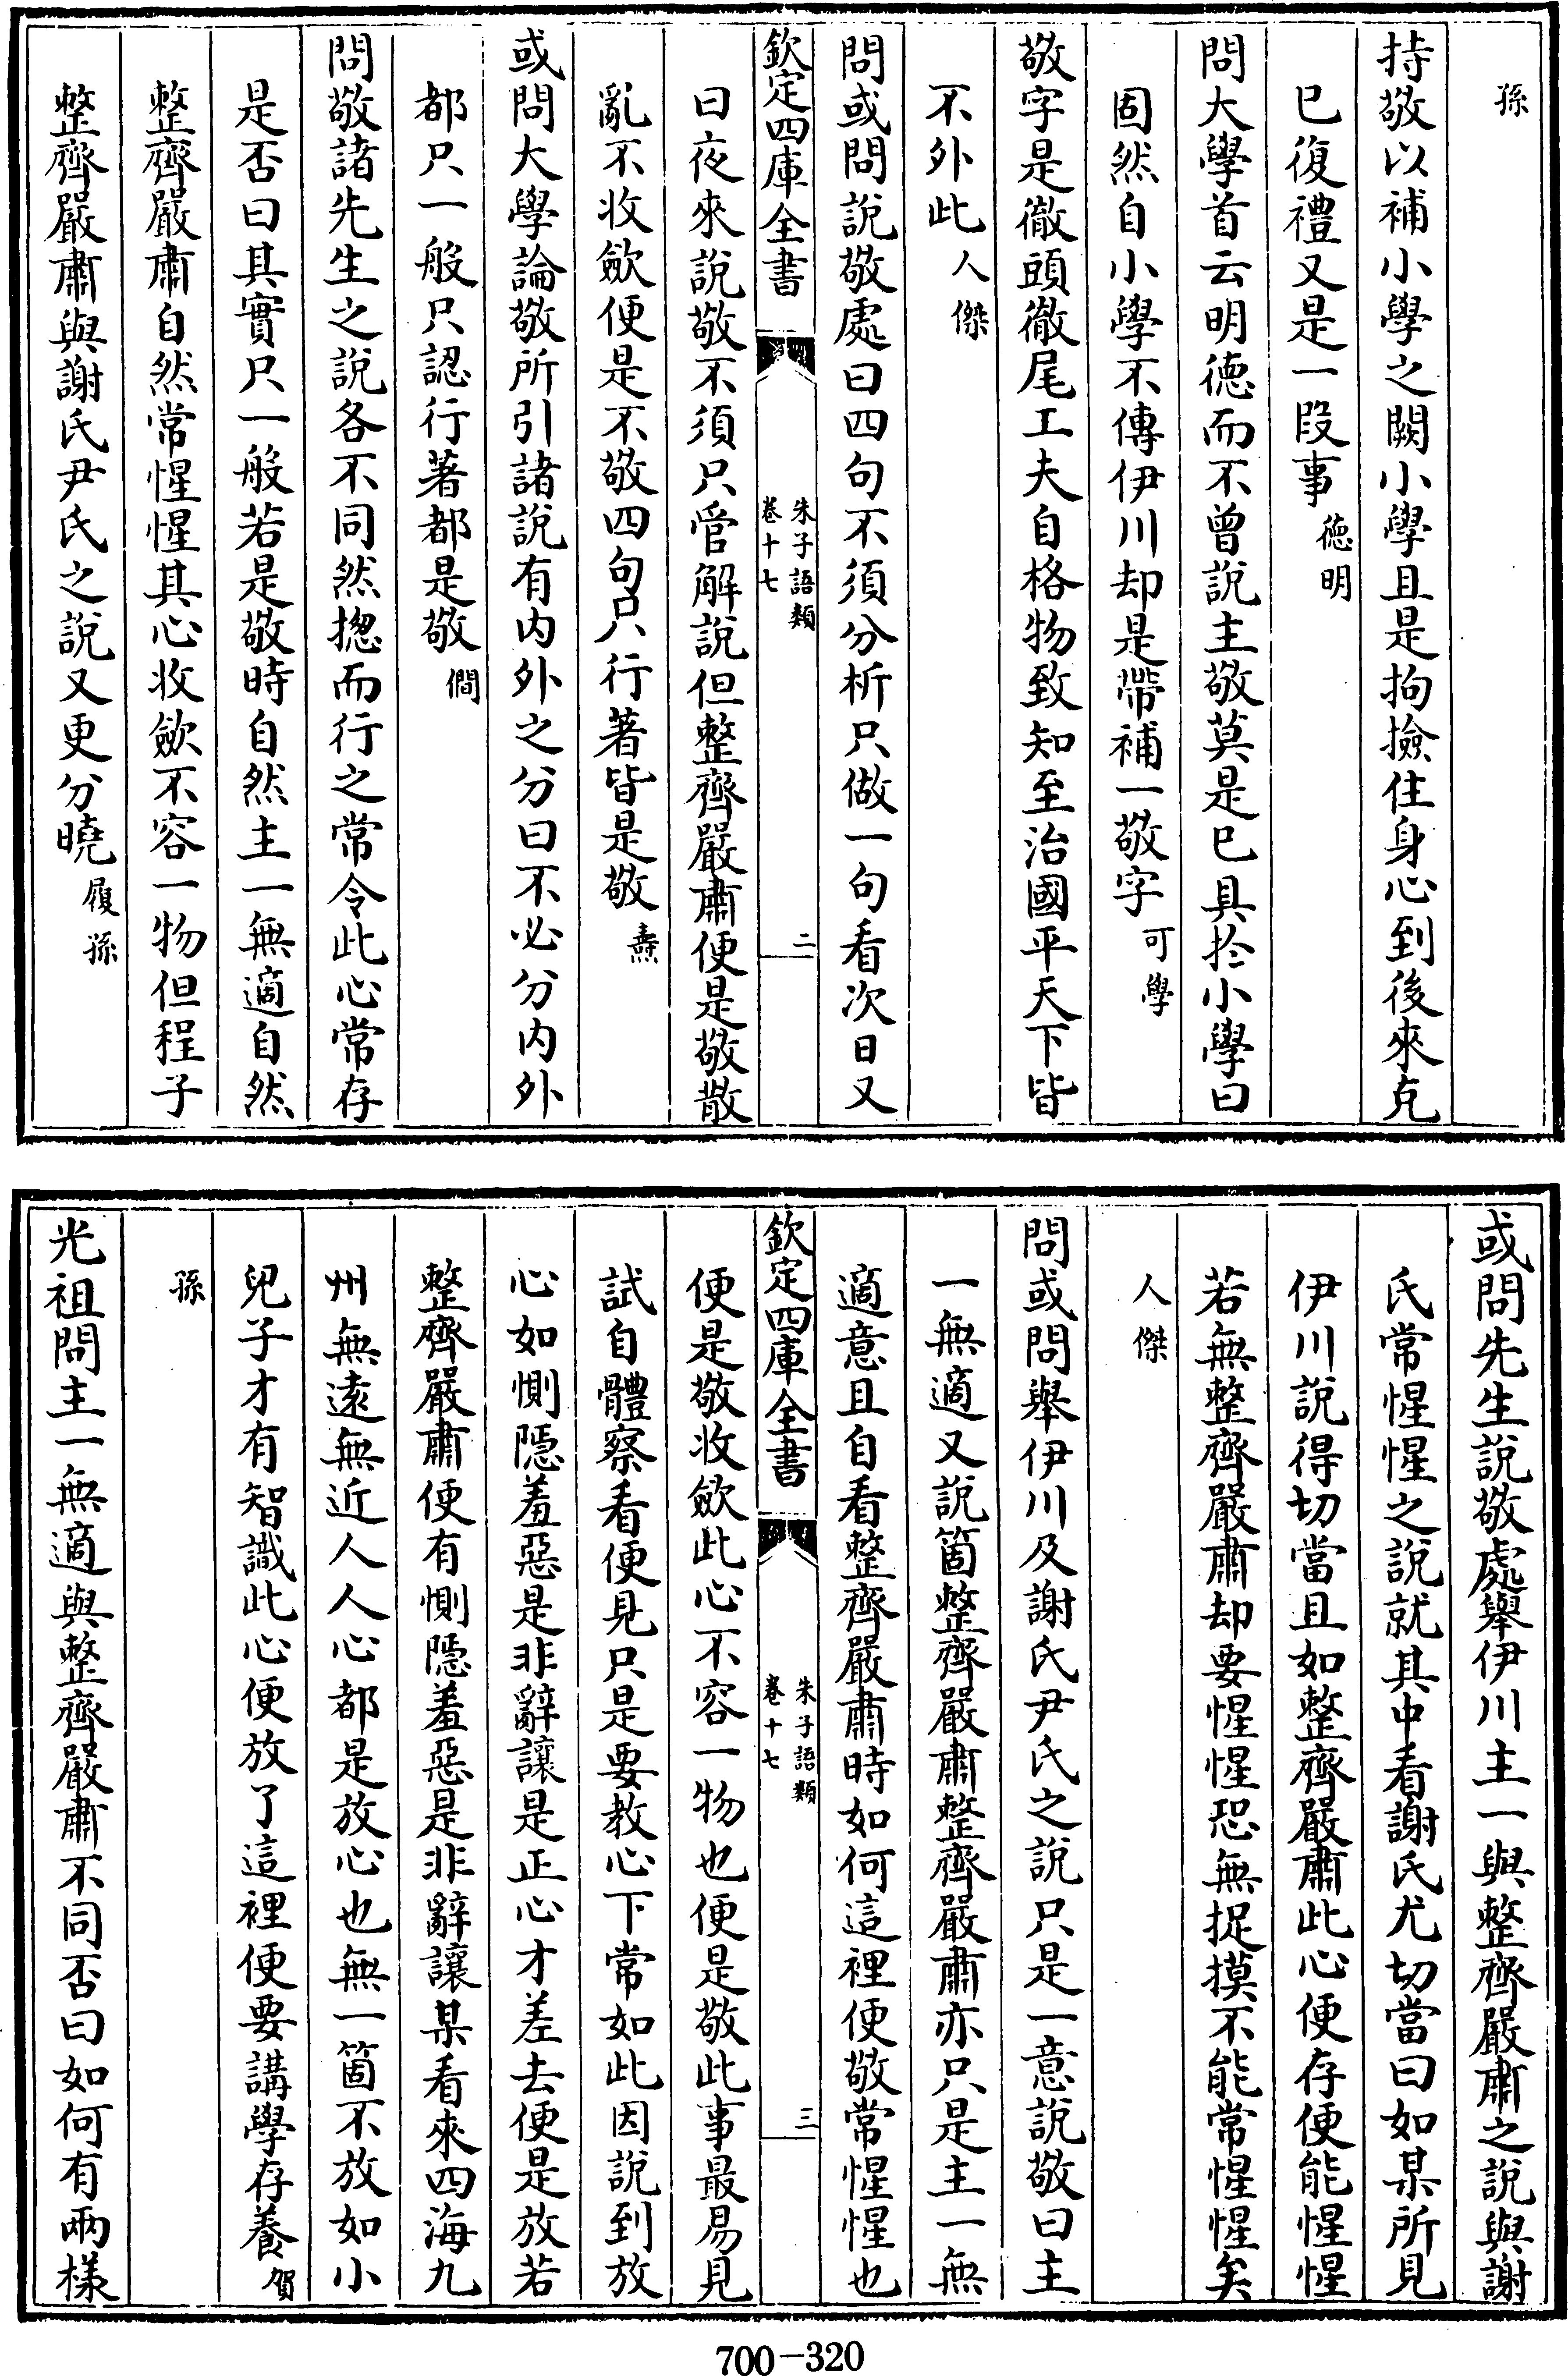 孫
持敬以補小學之闕小學且是拘撿住身心到後來克
已復禮又是一段事德明
問大學首云明德而不曾說主敬莫是已具扵小學曰
固然自小學不傳伊川却是帶補一敬字可學
敬字是徹頭徹尾工夫自格物致知至治國平天下皆
不外此人傑
問或問說敬處曰四句不須分析只做一句看次日又
欽定四庫全書
朱子語類
卷十七
二
曰夜來說敬不須只管解說但整齊嚴肅便是敬散
亂不收歛便是不敬四句只行著皆是敬燾
或問大學論敬所引諸說有内外之分曰不必分内外
都只一般只認行著都是敬僩
問敬諸先生之說各不同然摠而行之常令此心常存
是否曰其實只一般若是敬時自然主一無適自然
整齊嚴肅自然常惺惺其心收歛不容一物但程子
整齊嚴肅與謝氏尹氏之說又更分曉履孫
或問先生說敬處舉伊川主一與整齊嚴肅之說與謝
氏常惺惺之說就其中看謝氏尤切當曰如某所見
伊川說得切當且如整齊嚴肅此心便存便能惺惺
若無整齊嚴肅却要惺惺恐無捉摸不能常惺惺矣
人傑
問或問舉伊川及謝氏尹氏之說只是一意說敬曰主
一無適又說箇整齊嚴肅整齊嚴肅亦只是主一無
適意且自看整齊嚴肅時如何這裡便敬常惺惺也
欽定四庫全書
朱子語類
卷十七
三
便是敬收歛此心不容一物也便是敬此事最易見
試自體察看便見只是要教心下常如此因說到放
心如惻隱羞惡是非辭讓是正心才差去便是放若
整齊嚴肅便有惻隱羞惡是非辭讓某看來四海九
州無逺無近人人心都是放心也無一箇不放如小
兒子才有智識此心便放了這裡便要講學存養賀
孫
光祖問主一無適與整齊嚴肅不同否曰如何有兩樣
700-320